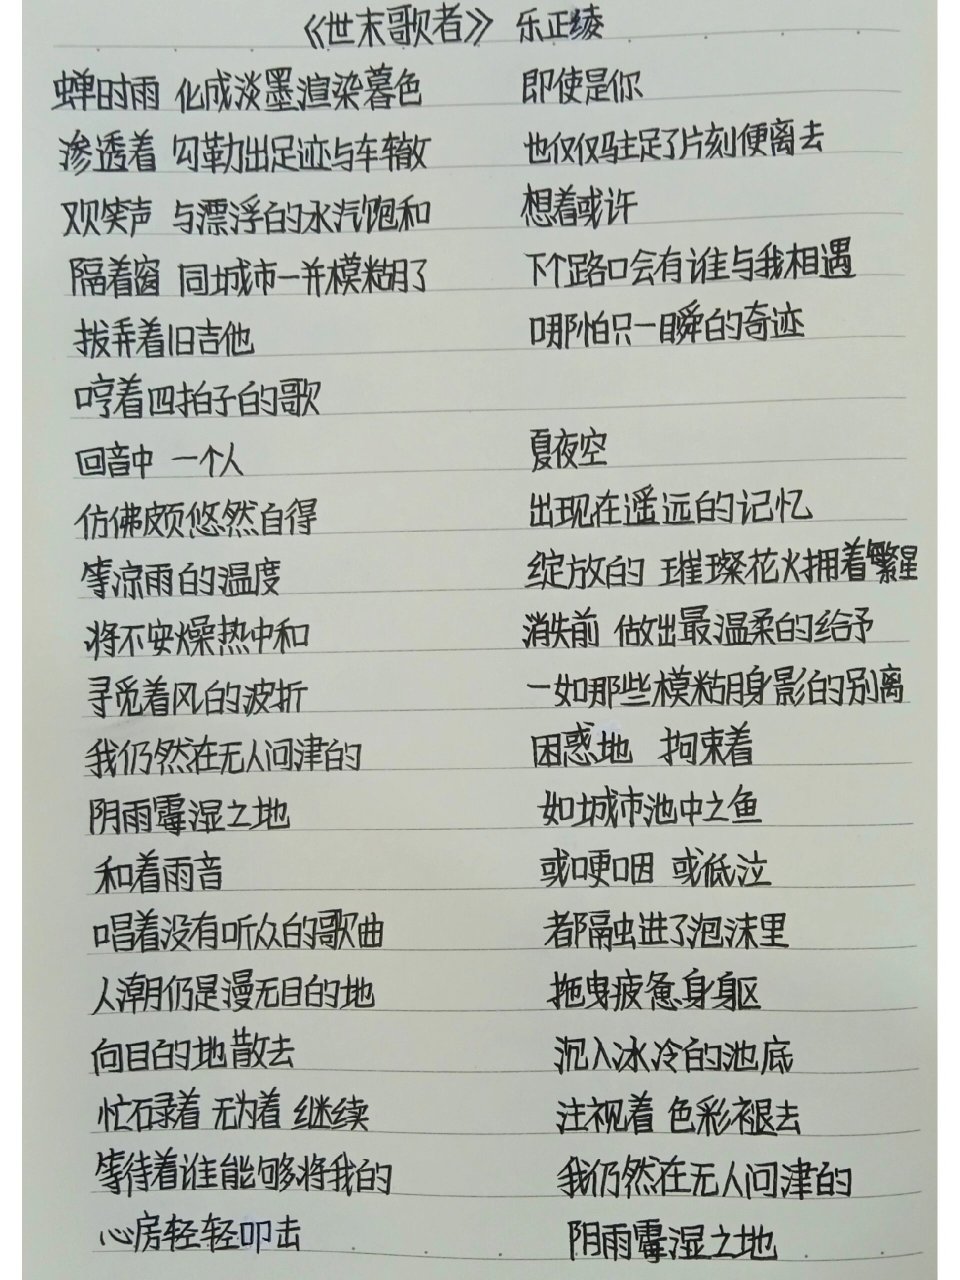 《世末歌者》 乐正绫
蝉时雨 化成淡墨渲染暮色
渗透着 勾勒出足迹与车辙
欢笑声 与漂浮的水汽饱和
隔着窗 同城市一并模糊了
拨弄着旧吉他
哼着四拍子的歌
回音中 一个人
仿佛颇悠然自得
等凉雨的温度
将不安燥热中和
寻觅着风的波折
我仍然在无人问津的
阴雨霉湿之地
和着雨音
唱着没有听众的歌曲
人潮仍是漫无目的地
向目的地散去
忙碌着 无为着 继续
等待着谁能够将我的
心房轻轻叩击
即使是你
也仅仅驻足了片刻便离去
想着或许
下个路口会有谁与我相遇
哪怕只一瞬的奇迹
夏夜空
出现在遥远的记忆
绽放的 璀璨花火拥着繁星
消失前 做出最温柔的给予
一如那些模糊身影的别离
困惑地 拘束着
如城市池中之鱼
或哽咽 或低泣
都融进了泡沫里
拖曳疲惫身躯
沉入冰冷的池底
注视着 色彩褪去
我仍然在无人问津的
阴雨霉湿之地